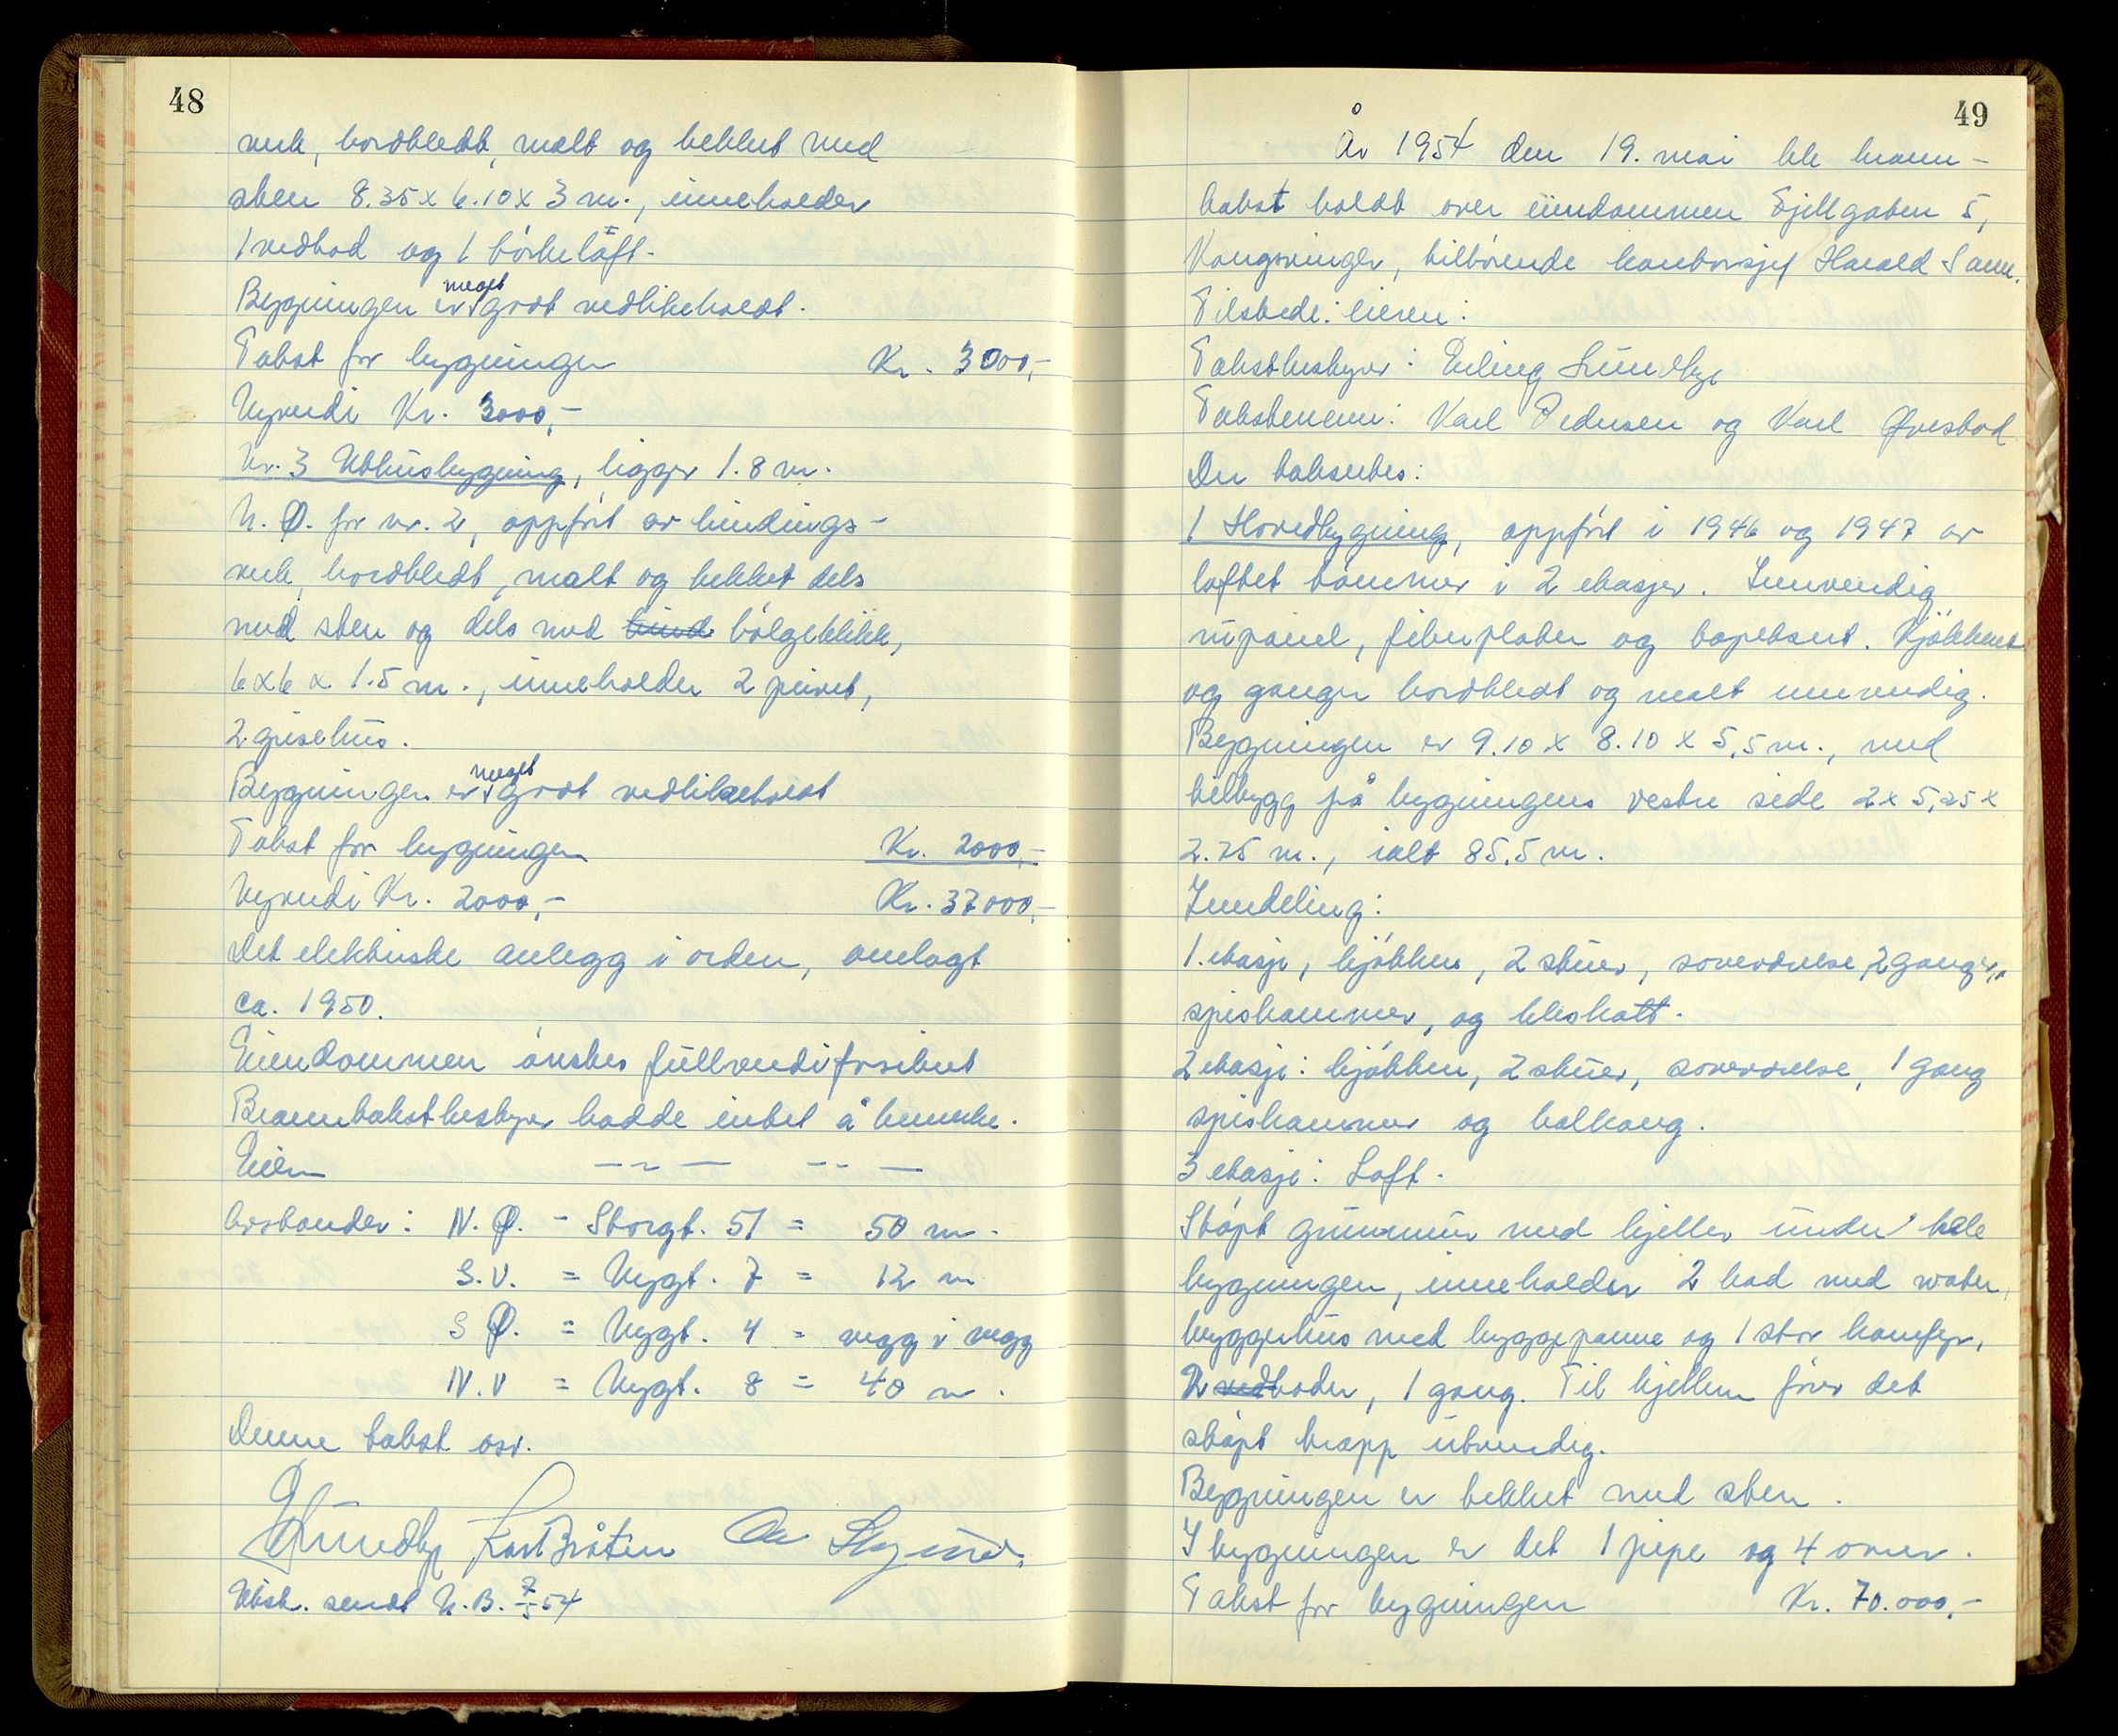 48
verk, bordkledt, malt og tekket med
sten 8.35 x 6.10 x 3 m., inneholder
1 vedbod og 1 tørkeloft.
Bygningen er meget godt vedlikeholdt.
Takst for bygningen Kr. 3000,-
Nyverdi Kr. 3000,-
Nr. 3 Uthusbygning, ligger 1.8 m.
N.Ø. for nr. 2, oppført av bindings-
verk, bordkledt, malt og tekket dels
med sten og dels med bølgeblikk,
6 x 6 x 1.5 m., inneholder 2 privet,
2 grisehus.
Bygningen er meget godt vedlikeholdt
Takst for bygningen Kr. 2000,-
Nyverdi Kr. 2000,- Kr. 37000,-
Det elektriske anlegg i orden, omlagt
ca. 1950.
Eiendommen ønskes fullverdiforsikret
Branntakstbestyrer hadde intet å bemerke.
Eieren — ~ — - - —
Avstander: N.Ø. - Storgt. 51 = 50 m.
S.V. = Nygt. 7 = 12 m
S Ø. = Nygt. 4 = vegg i vegg
N.V = Nygt. 8 = 40 m.
Denne takst osv.
ELundby Karl Bråten
Utskr. sendt N.B. 7/5 54
49
År 1954 den 19. mai ble brann-
takst holdt over eiendommen Fjellgaten 5,
Kongsvinger, tilhørende kontorsjef Harald
Tilstede: eieren:
Takstbestyrer: Erling Lundbye
Takstmenn: Karl Pedersen og Karl Øvestad
Der takseres:
1 Hovedbygning, oppført i 1946 og 1947 av
laftet tømmer i 2 etasjer. Innvendig
rupanel, fiberplater og tapetsert. Kjøkkenet
og ganger bordkledt og malt innvendig.
Bygningen er 9.10 x 8.10 x 5,5 m., med
tilbygg på bygningens vestre side 2 x 5,25 x
2.75 m., ialt 85,5 m.
Inndeling:
1. etasje, kjøkken, 2 stuer, soveværelse, 2 ganger,
spiskammer, og kleskott.
2 etasje: kjøkken, 2 stuer, soveværelse, 1 gang
spiskammer og balkong.
3 etasje: Loft.
Støpt grunnmur med kjeller under hele
bygningen, inneholder 2 bad med water,
bryggerhus med bryggepanne og 1 stor komfyr,
2 vedboder, 1 gang. Til kjelleren fører det
støpt trapp utvendig.
Bygningen er tekket med sten.
I bygningen er det 1 pipe og 4 ovner.
Takst for bygningen Kr. 70.000,-